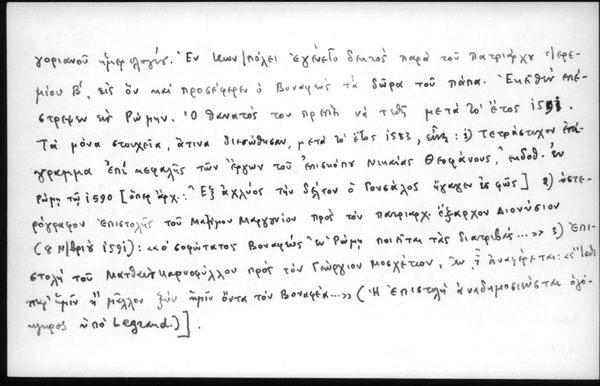 γοριανοῦ ἡμερολογίου. Ἐν Κων/πόλει ἐγένετο δεκτὸς παρὰ τοῦ Πατριάρχου Ἱερε-
μίου Β', εἰς ὃν καὶ προσέφερεν ὁ Βοναφεὺς τὰ δῶρα τοῦ πάπα. Ἐκεῖθεν ἐπέ-
στρεψεν εἰς Ρώμην. Ὁ θάνατός του πρέπει νὰ τεθῇ μετὰ τὸ ἔτος 1591.
Τὰ μόνα στοιχεῖα, ἅτινα διεσώθησαν, μετὰ τὸ ἔτος 1583, εἶναι: 1) Τετράστιχον ἐπί-
γραμμα ἐπὶ κεφαλῆς τῶν ἔργων τοῦ ἐπισκόπου Νικαίας Θεοφάνους, ἐκδοθ. ἐν
Ρώμῃ τῷ 1590 [ὅπερ ἄρχ.: "Ἐξ ἀχλύος τὴν δέλτον ὁ Γονσάλος ἤγαγεν ἐς φῶς] 2) ὑστε-
ρόγραφον ἐπιστολῆς τοῦ Μαξίμου Μαργουνίου πρὸς τὸν πατριαρχ. ἔξαρχον Διονύσιον
(8 Ν/βρίου 1591): «ὁ σοφώτατος Βοναφεὺς ἐν Ρώμῃ ποιεῖται τὰς διατριβάς...» 3) Ἐπι-
στολὴ τοῦ Ματθαίου Καρυοφύλλου πρὸς τὸν Γεώργιον Μοσχετιον, ἐν ᾗ ἀναφέρεται: «
παρ' ἡμῖν ἢ μᾶλλον ξὺν ἡμῖν ὄντα τὸν Βοναφέα...» (Ἡ ἐπιστολὴ ἀναδημοσιεύεται ὁλό-
κληρος ὑπὸ Legrand.)].